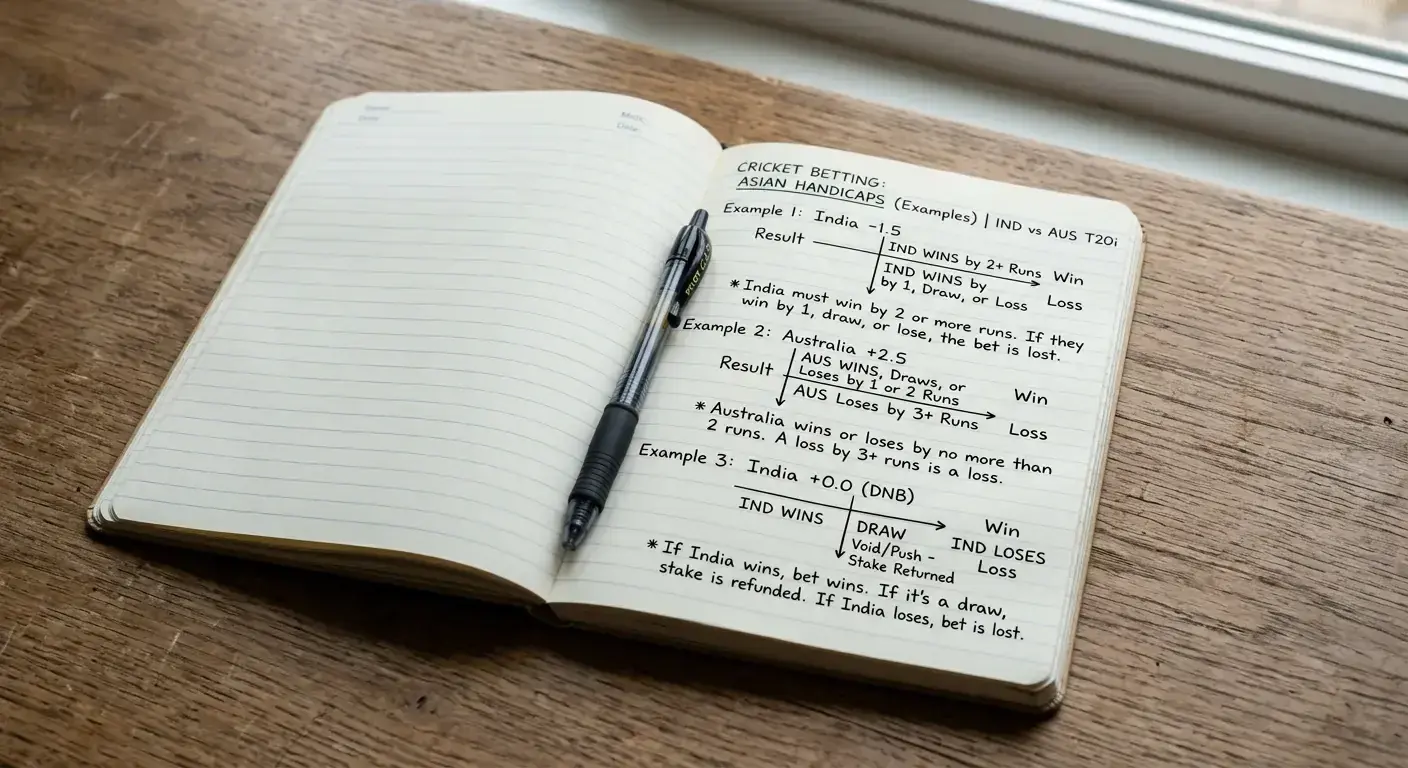 CRICKET BETTING:
ASIAN HANDICAPS (Examples) | IND vs AUS T20i
Example 1: India -1.5
Result
IND WINS by 2+ Runs Win
IND WINS by
by 1, Draw, or Loss Loss
* India must win by 2 or more runs. If they
win by 1, draw, or lose, the bet is lost.
Example 2: Australia +2.5
Result
AUS WINS, Draws, or
Loses by 1 or 2 Runs Win
AUS Loses by 3+ Runs Loss
* Australia wins or loses by no more than
2 runs. A loss by 3+ runs is a loss.
Example 3: India +0.0 (DNB)
IND WINS
Win
DRAW
Void/Push -
Stake Returned
IND LOSES
Loss
* If India wins, bet wins. If it's a draw,
stake is refunded. If India loses, bet is lost.
PILOT